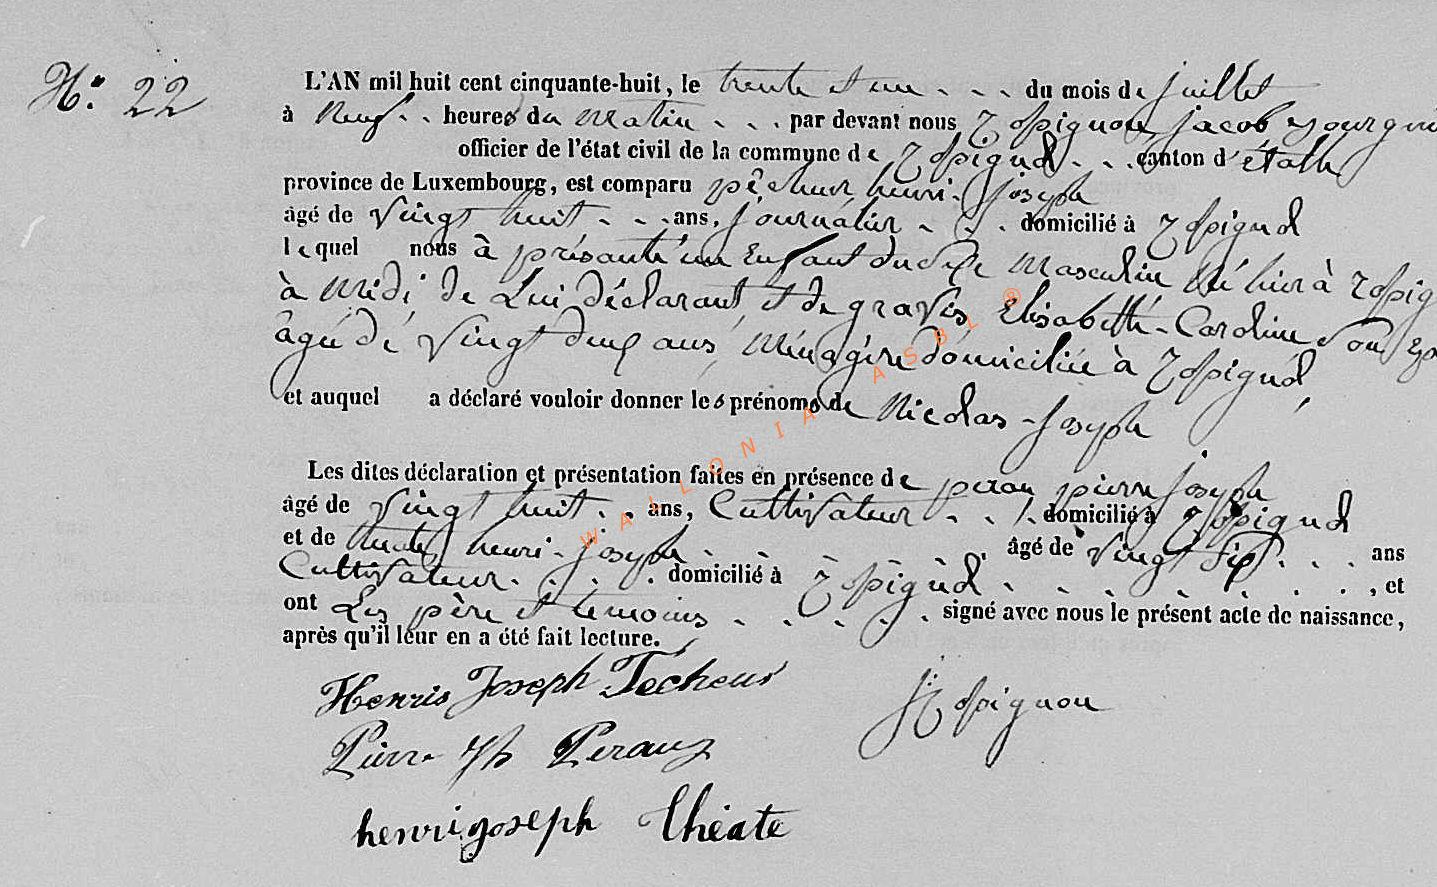 N° 22
L'AN mil huit cent cinquante-huit, le trente et un du mois de juillet
à neuf heures du matin par devant nous Ropignon jacob
officier de l'état civil de la commune de canton d'étalle
province de Luxembourg, est comparu pêcheur henri-joseph
âgé de vingt huit ans, journalier domicilié à
lequel nous à présanté un enfant du sexe masculin né hier à
à midi de Lui déclarant, et de gravis Elisabeth-Caroline son
âgée de vingt deux ans, ménagère domiciliée à
et auquel a déclaré vouloir donner les prénoms de Nicolas-joseph
Les dites déclaration et présentation faites en présence de perau pierre joseph
âgé de vingt huit ans, Cultivateur domicilié à
et de henri-joseph âgé de vingt six ans
Cultivateur domicilié à , et
ont Les père et temoins signé avec nous le présent acte de naissance,
après qu'il leur en a été fait lecture.
Henris Joseph Pécheur
Ropignon
Pierre Jh Peraux
henri joseph théate
WALLONIA ASBL ®